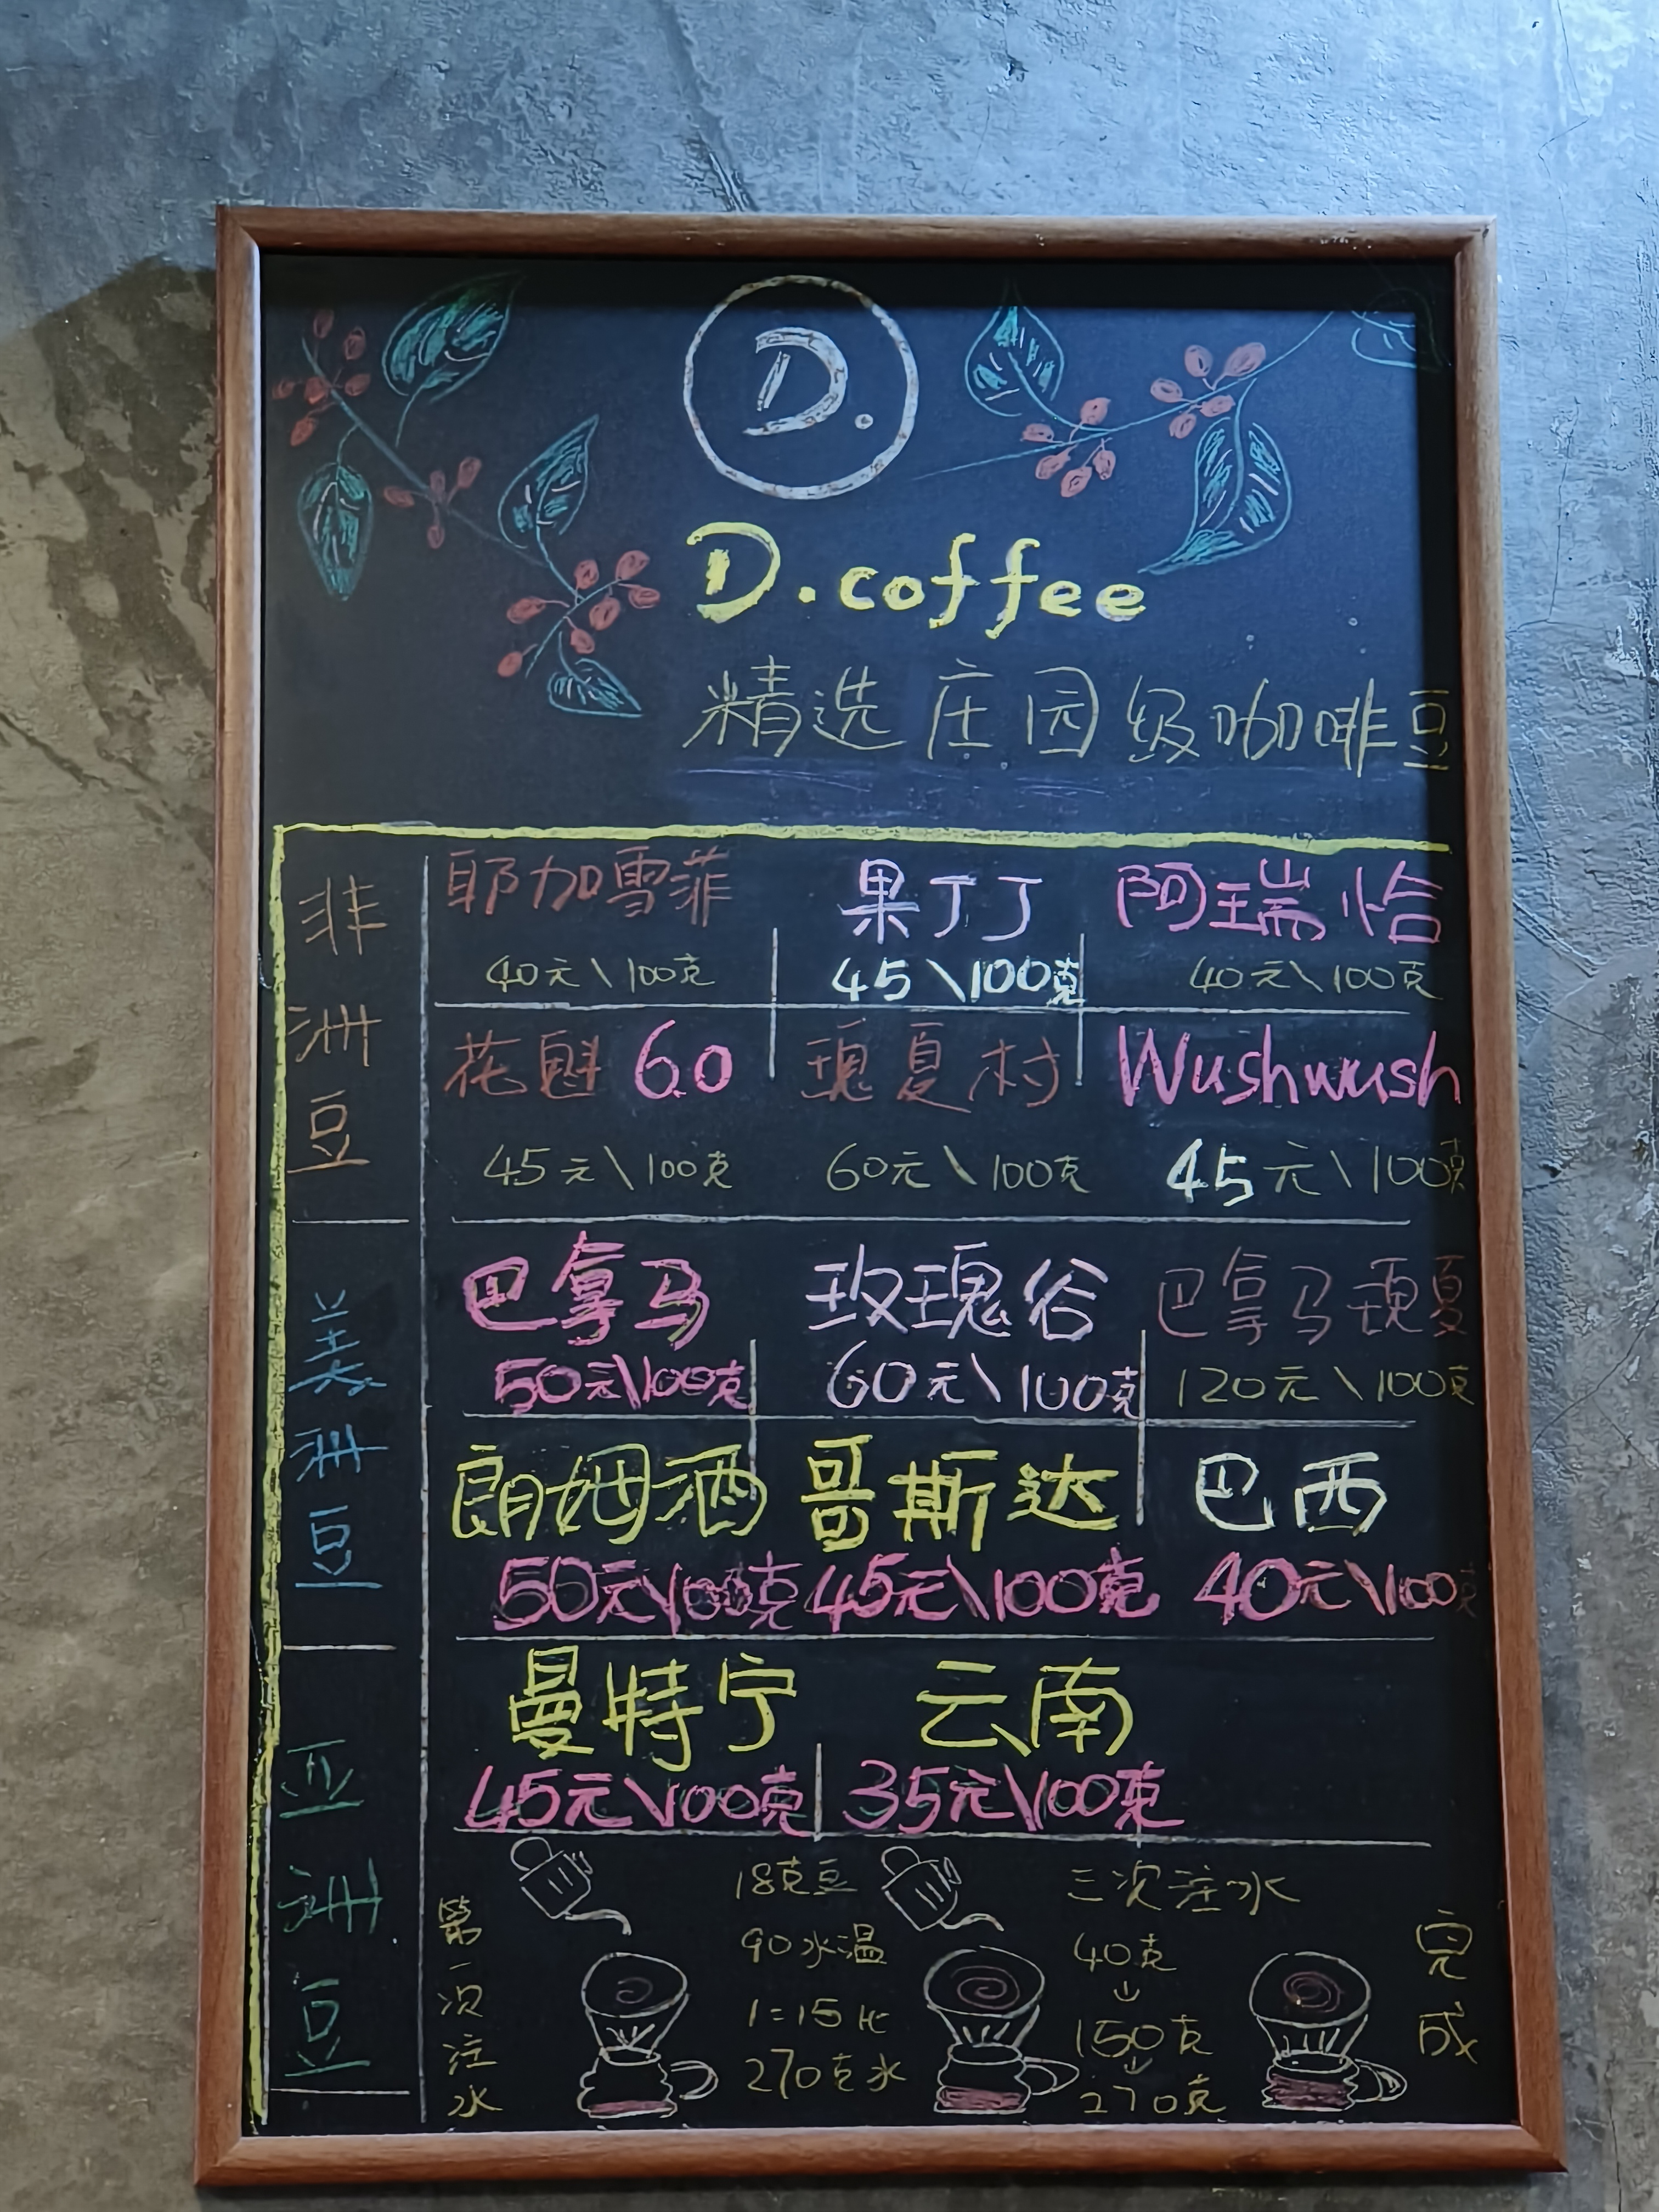 D.
D.coffee
精选庄园级咖啡豆
非洲豆
耶加雪菲 果丁丁 阿瑞恰
40元\100克 45\100克 40元\100克
花魁6.0 瑰夏村 Wushwush
45元\100克 60元\100克 45元\100克
美洲豆
巴拿马 玫瑰谷 巴拿马瑰夏
50元\100克 60元\100克 120元\100克
朗姆酒 哥斯达 巴西
50元\100克 45元\100克 40元\100克
亚洲豆
曼特宁 云南
45元\100克 35元\100克
第一次注水
18克豆
90水温
1=15比
270克水
三次注水
40克
↓
150克
↓
270克
完成